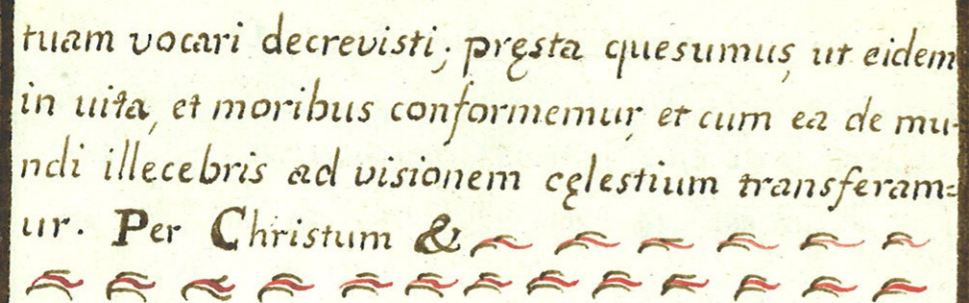 tuam vocari decrevisti; pręsta quesumus, ut eidem
in uita, et moribus conformemur, et cum ea de mu-
ndi illecebris ad visionem cęlestium transferam=
ur. Per Christum &